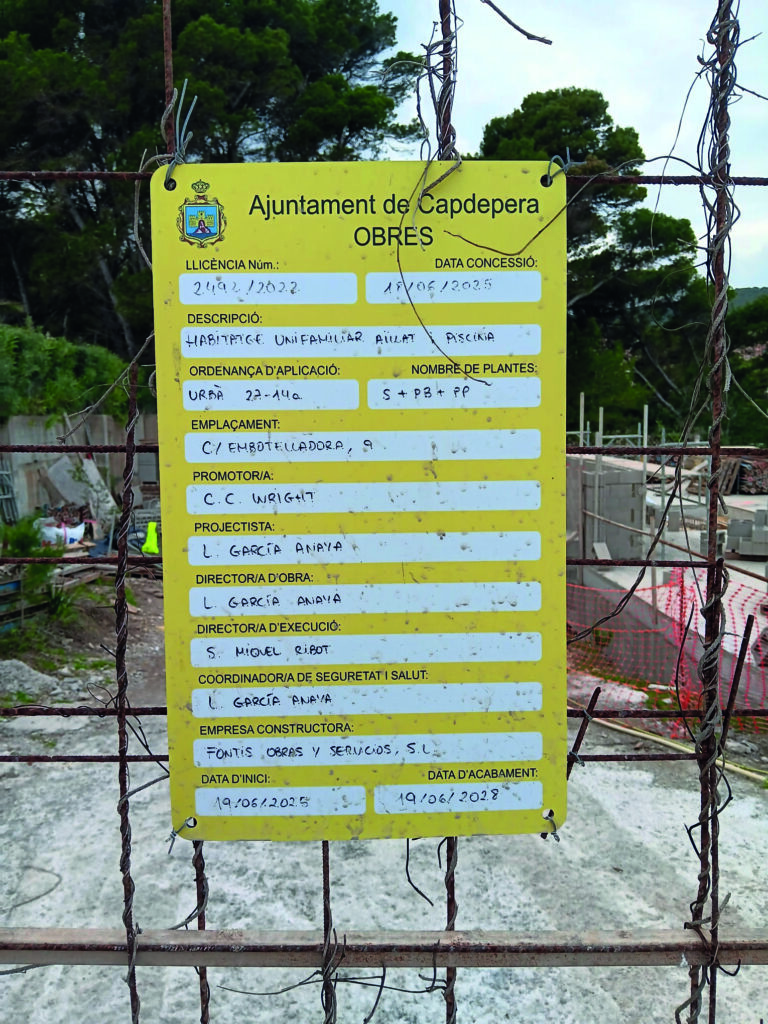 Ajuntament de Capdepera
OBRES
LLICÈNCIA Núm.: DATA CONCESSIÓ:
2492/2022 18/06/2025
DESCRIPCIÓ:
HABITATGE UNIFAMILIAR AÏLLAT i PISCINA
ORDENANÇA D'APLICACIÓ: NOMBRE DE PLANTES:
URBÀ 27-14a S + PB + PP
EMPLAÇAMENT:
C/ EMBOTELLADORA, 9
PROMOTOR/A:
C.C. WRIGHT
PROJECTISTA:
L. GARCÍA ANAYA
DIRECTOR/A D'OBRA:
L. GARCÍA ANAYA
DIRECTOR/A D'EXECUCIÓ:
S. MIQUEL RIBOT
COORDINADOR/A DE SEGURETAT I SALUT:
L. GARCÍA ANAYA
EMPRESA CONSTRUCTORA:
FONTIS OBRAS Y SERVICIOS, S.L.
DATA D'INICI: DATA D'ACABAMENT:
19/06/2025 19/06/2028